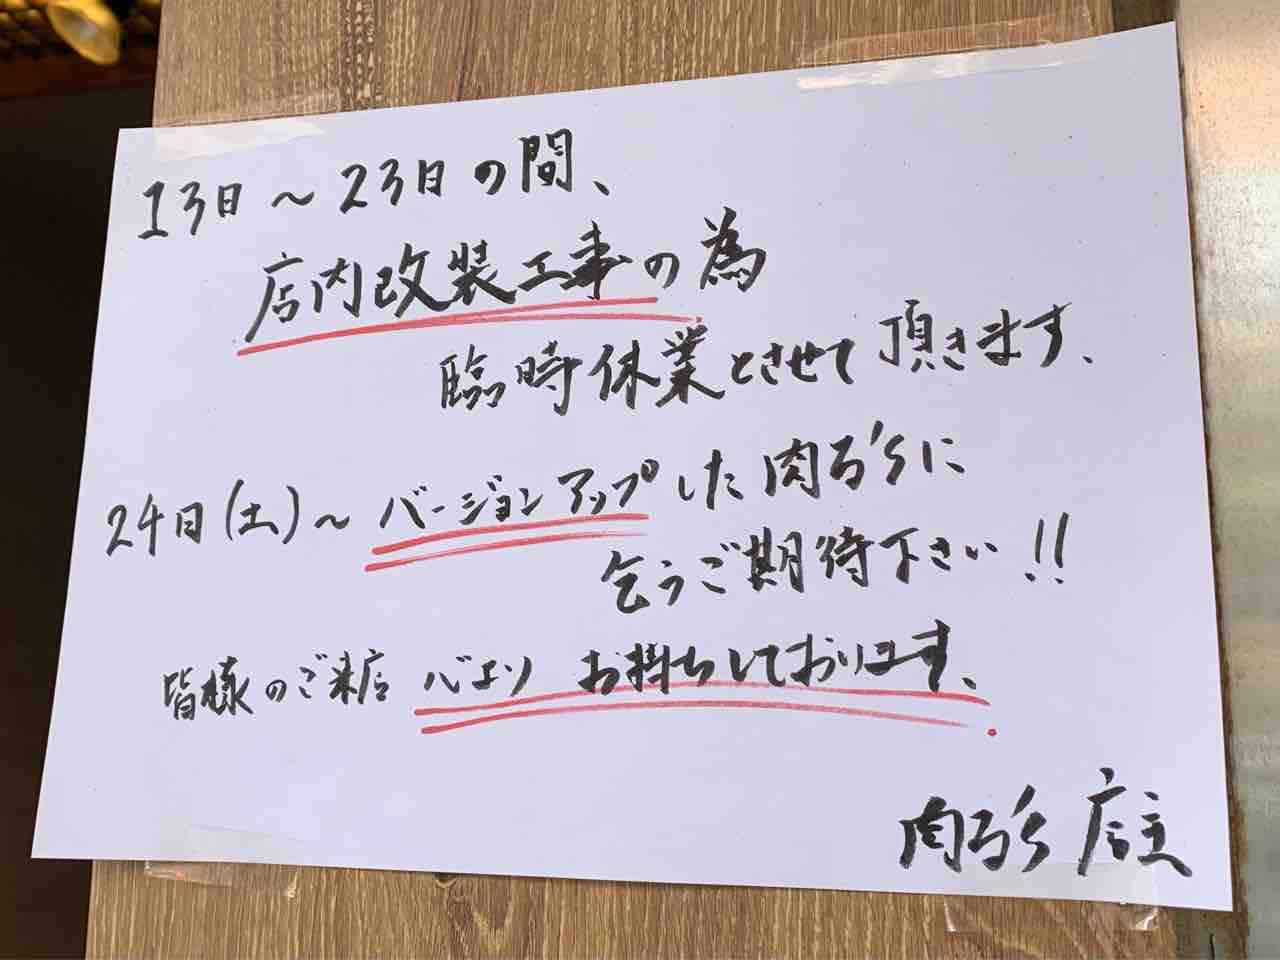 13日～23日の間、
店内改装工事の為
臨時休業とさせて頂きます、
24日(土)～バージョンアップした肉る'sに
乞うご期待下さい!!
皆様のご来店 心より お待ちしております、
肉る's 店主